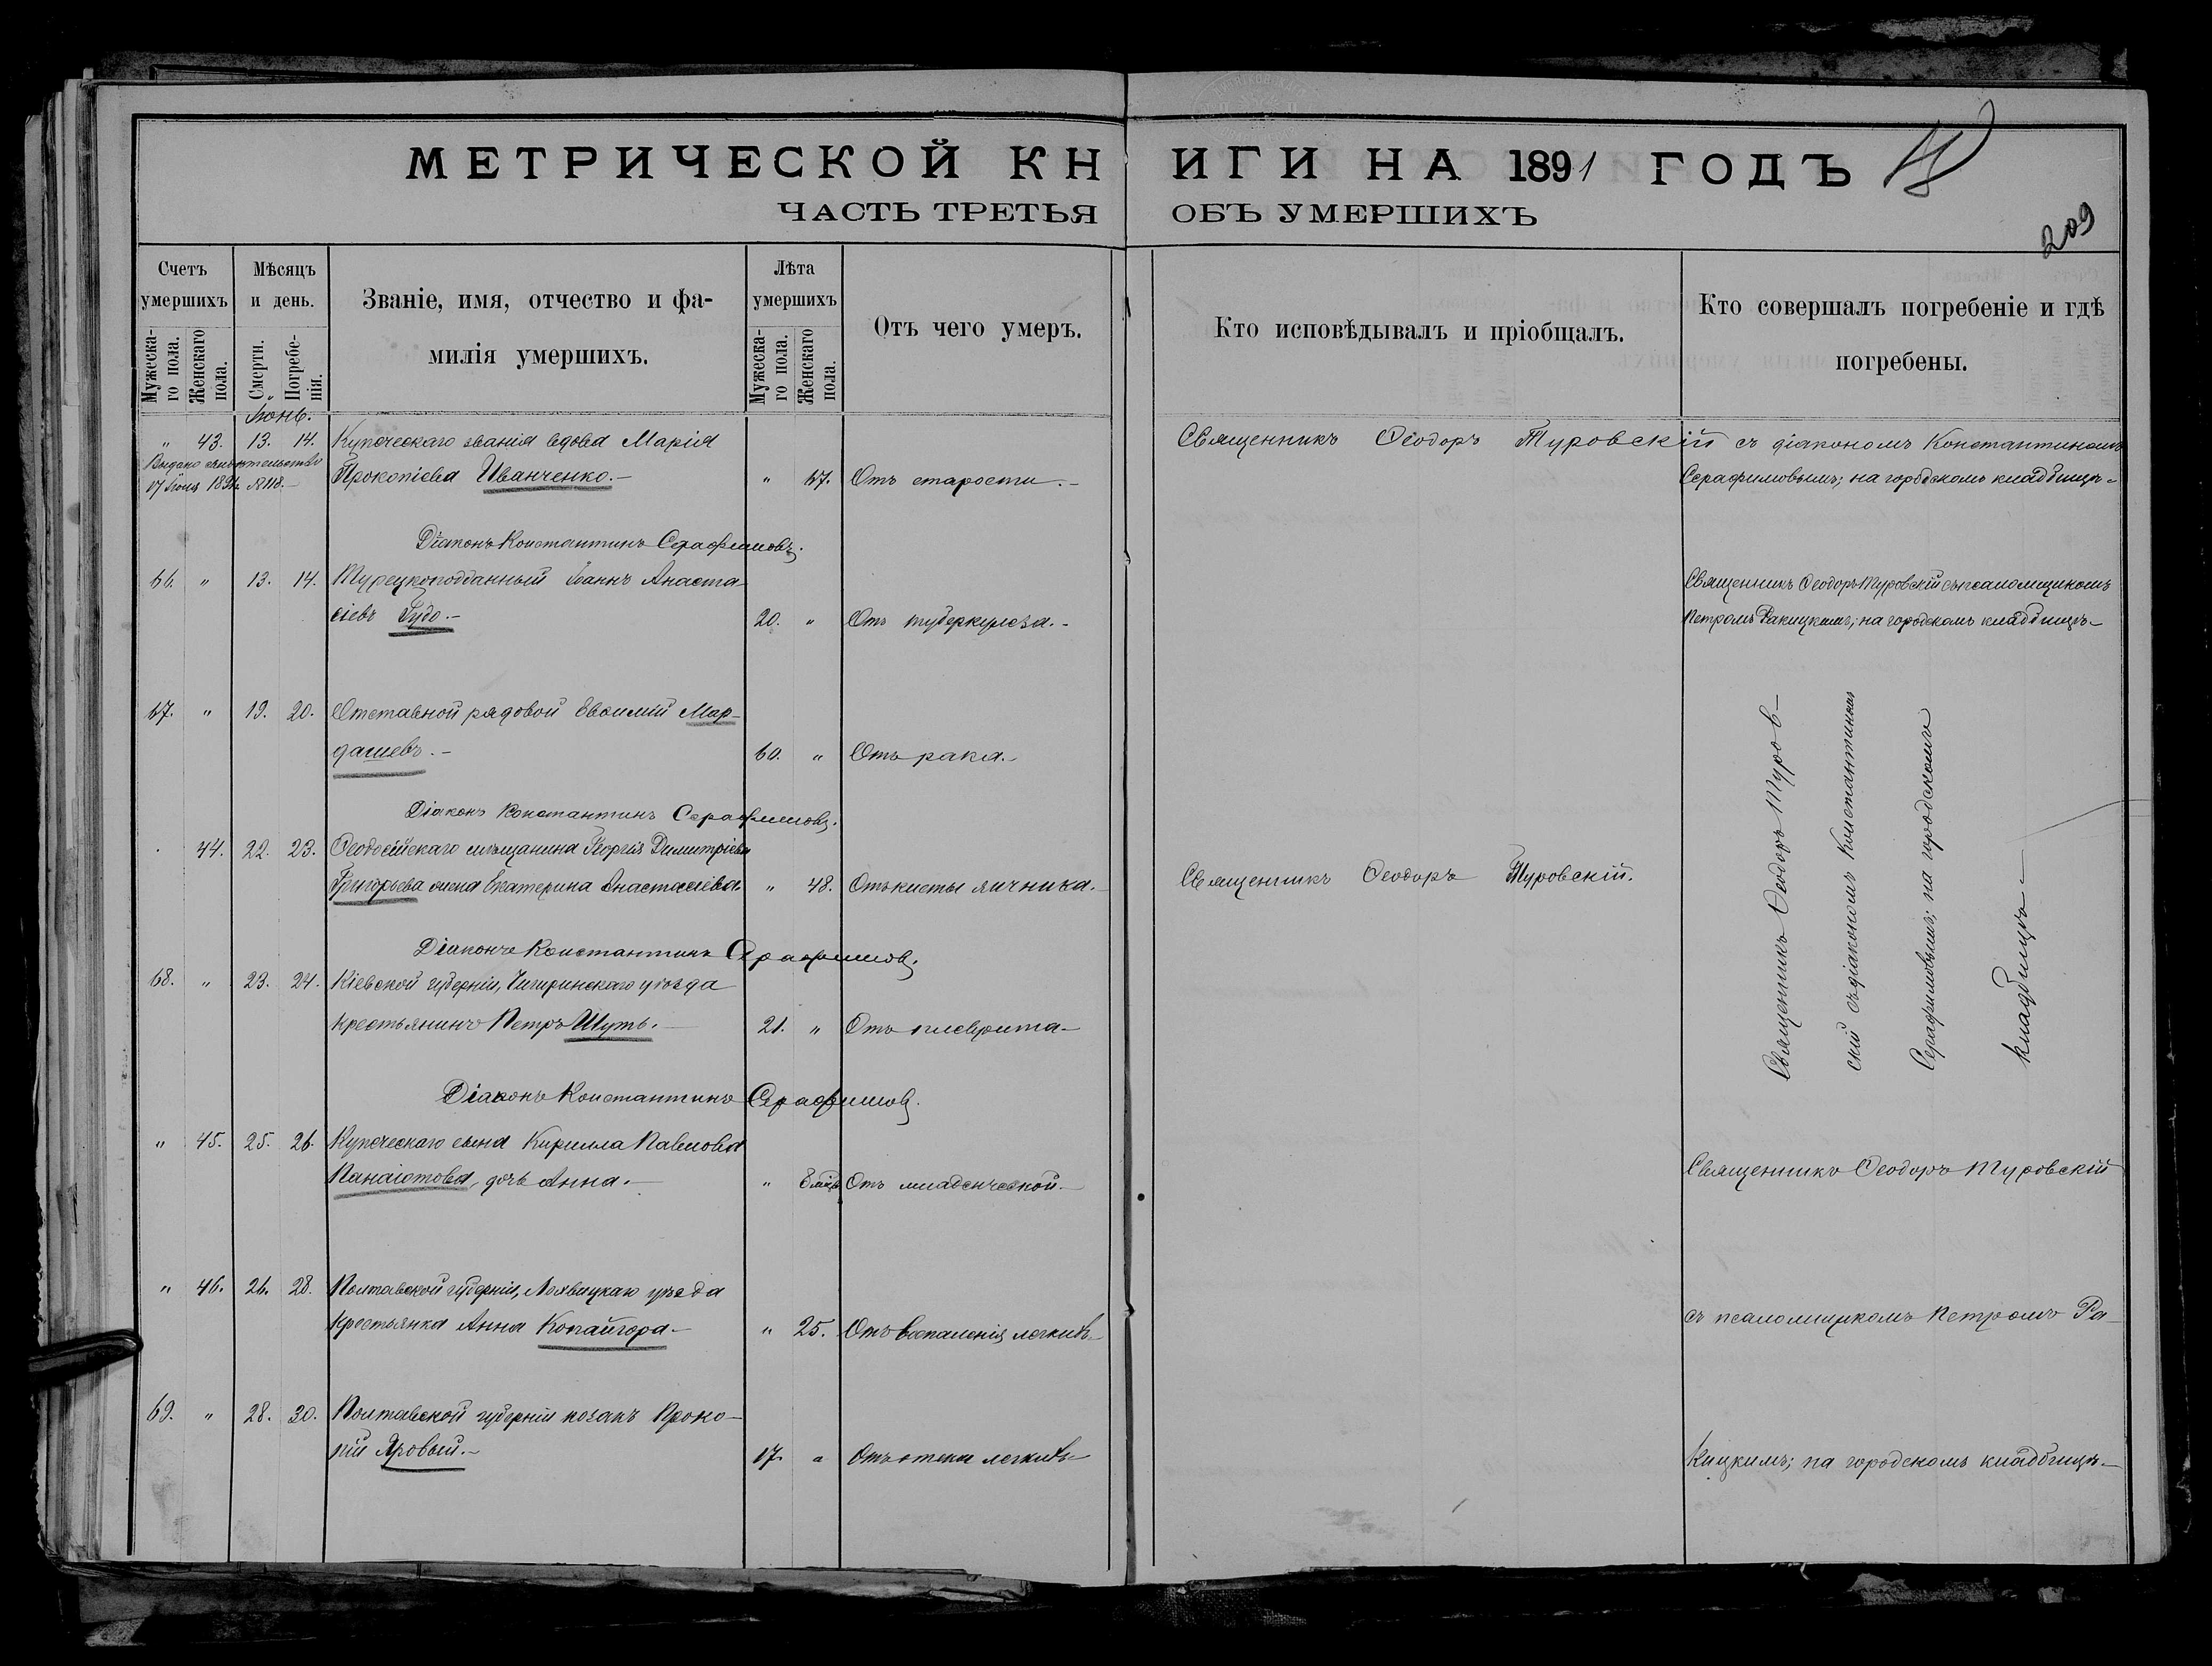 МЕТРИЧЕСКОЙ КНИГИ НА 1891 ГОДЪ
ЧАСТЬ ТРЕТЬЯ ОБЪ УМЕРШИХЪ
209
Счетъ умершихъ
Мѣсяцъ и день.
Званіе, имя, отчество и фамилія умершихъ.
Лѣта умершихъ
Отъ чего умеръ.
Кто исповѣдывалъ и пріобщалъ.
Кто совершалъ погребеніе и гдѣ погребены.
Мужеска-го пола.
Женскаго пола.
Смерти.
Погребе-нія.
Мужеска-го пола.
Женскаго пола.
Іюнь.
" 43. 13. 14. Купеческаго званія вдова Марія
Священникъ Ѳеодоръ Туровскій съ діакономъ Константиномъ
Выдано свидѣтельство
Прокопіева Иванченко.- " 67. Отъ старости.-
Серафимовымъ; на городскомъ кладбищѣ-
17 Іюня 1891 №118.-
Діаконъ Константинъ Серафимовъ.
66. " 13. 14. Турецкоподданный Іоаннъ Анаста-
Священникъ Ѳеодоръ Туровскій съ псаломщикомъ
сіевъ Гудо.- 20. " Отъ туберкулеза.-
Петромъ Ракицкимъ; на городскомъ кладбищѣ-
67. " 19. 20. Отставной рядовой Евѳимій Мар-
дашевъ.- 60. " Отъ рака.-
Діаконъ Константинъ Серафимовъ.
44. 22. 23. Ѳеодосійскаго мѣщанина Георгія Димитріева
Григорьева жена Екатерина Анастасіева " 48. Отъ кисты яичника.-
Священникъ Ѳеодоръ Туровскій.
Священникъ Ѳеодоръ Туров-
скій съ діакономъ Константиномъ
Серафимовымъ; на городскомъ
кладбищѣ-
Діаконъ Константинъ Серафимовъ.
68. " 23. 24. Кіевской губерніи, Чигиринскаго уѣзда
крестьянинъ Петръ Шуть.- 21. " Отъ плеврита-
Діаконъ Константинъ Серафимовъ.
" 45. 25. 26. Купеческаго сына Кирилла Павлова
Панаіотова, дочь Анна.- " 8 мѣс. Отъ младенческой.-
Священникъ Ѳеодоръ Туровскій
" 46. 26. 28. Полтавской губерніи, Лохвицкаго уѣзда
крестьянка Анна Копайгора- " 25. Отъ воспаленія легкихъ-
съ псаломщикомъ Петромъ Ра-
69. " 28. 30. Полтавской губерніи козакъ Проко-
пій Яровый.- 17. " Отъ отека легкихъ-
кицкимъ; на городскомъ кладбищѣ-